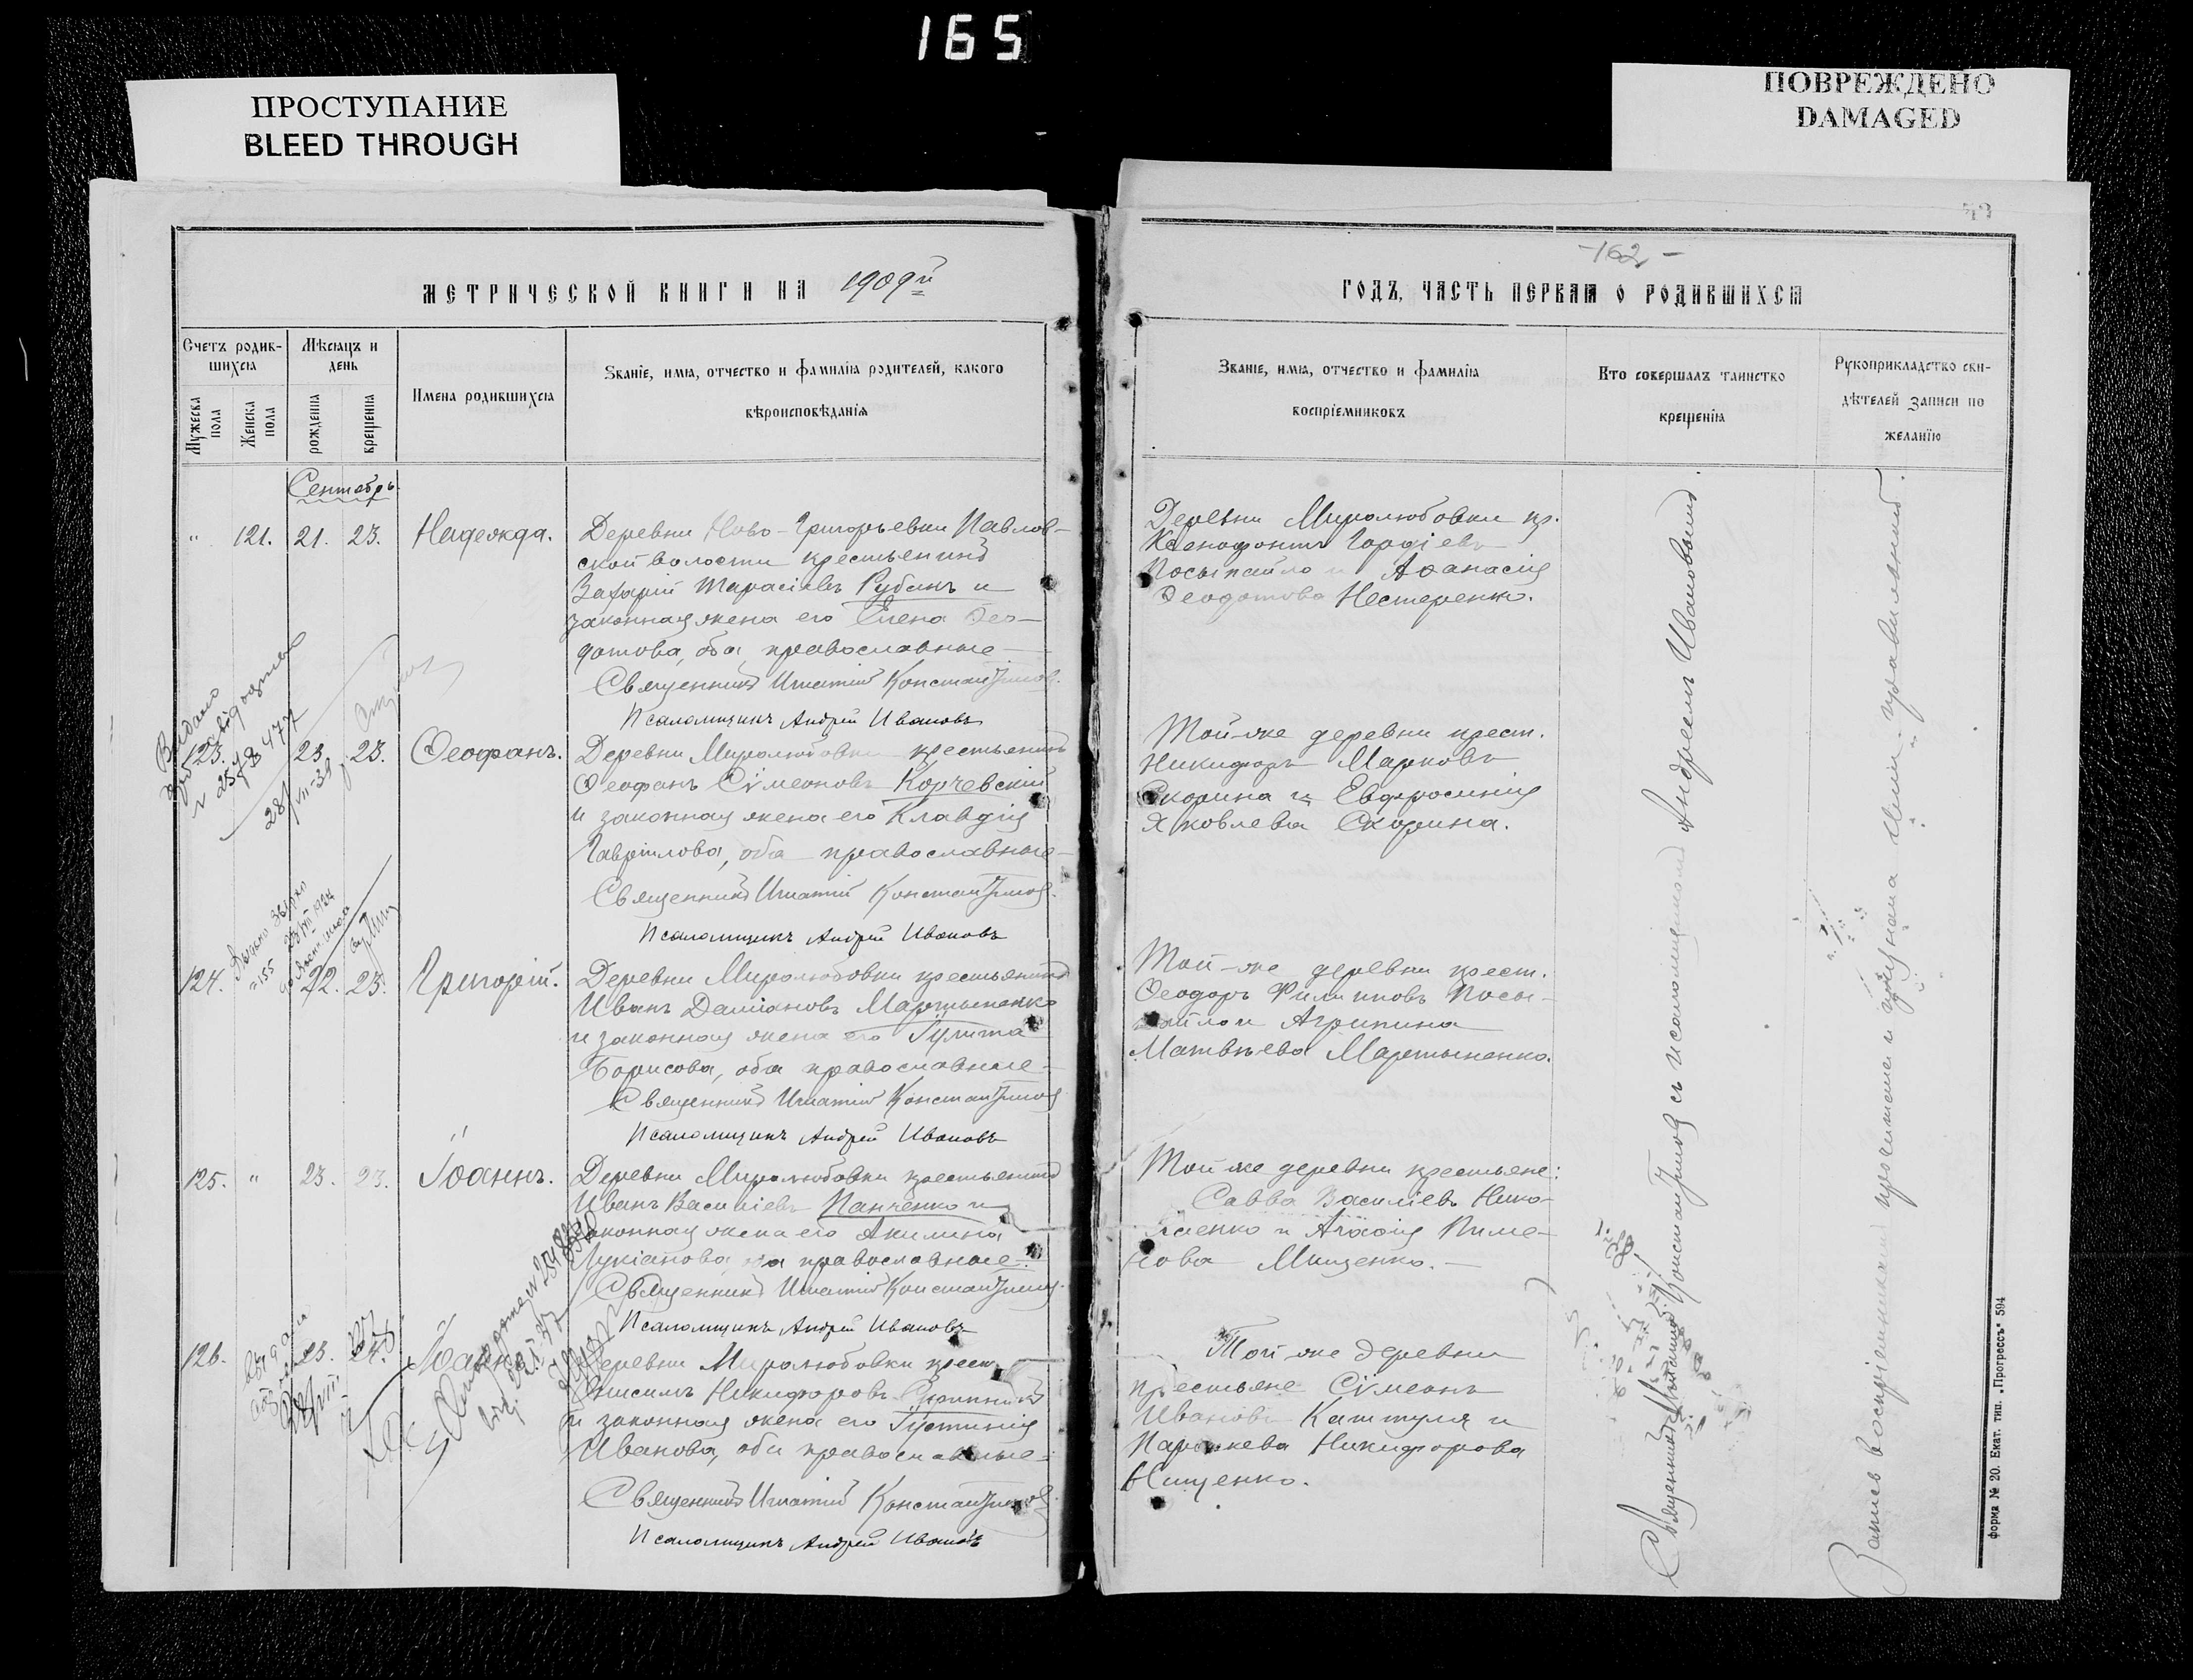 165
ПРОСТУПАНИЕ
BLEED THROUGH
ПОВРЕЖДЕНО
DAMAGED
МЕТРИЧЕСКОЙ КНИГИ НА 1909й
Счетъ родившихся
Мужеска пола
Женска пола
Мѣсяцъ и день
рожденія
крещенія
Имена родившихся
Званіе, имя, отчество и фамилія родителей, какого
вѣроисповѣданія
Сентябрь
" 121. 21. 23. Надежда.
Деревни Ново-Григорьевки Павлов-
ской волости крестьянинъ
Захарій Тарасіевъ Рубанъ и
законная жена его Елена Ѳео-
датова, оба православные
Священникъ Игнатій Константиновъ
Псаломщикъ Андрей Ивановъ
Видано
28/VII-39
123. 23. 23. Ѳеофанъ.
Деревни Миролюбовки крестьянинъ
Ѳеофанъ Сімеоновъ Корчевскій
и законная жена его Клавдія
Гавріилова, оба православные
Священникъ Игнатій Константиновъ
Псаломщикъ Андрей Ивановъ
124. 22. 23. Григорій.
Деревни Миролюбовки крестьянинъ
Иванъ Даміановъ Мартыненко
и законная жена его Іулита
Борисова, оба православные
Священникъ Игнатій Константиновъ
Псаломщикъ Андрей Ивановъ
125. " 23. 23. Іоаннъ.
Деревни Миролюбовки крестьянинъ
Иванъ Василіевъ Панченко и
законная жена его Акилина
Лукіанова, оба православные
Священникъ Игнатій Константиновъ
Псаломщикъ Андрей Ивановъ
126. 23. 24. Іоаннъ
Деревни Миролюбовки крест.
Онисимъ Никифоровъ
и законная жена его Іустинія
Иванова, оба православные
Священникъ Игнатій Константиновъ
Псаломщикъ Андрей Ивановъ
-162-
ГОДЪ, ЧАСТЬ ПЕРВАЯ О РОДИВШИХСЯ
Званіе, имя, отчество и фамилія
воспріемниковъ
Кто совершалъ таинство
крещенія
Рукоприкладство сви-
дѣтелей записи по
желанію
Деревни Миролюбовки кр.
Ксенофонтъ Гордіевъ
Посыпайло и Аѳанасія
Ѳеодотова Нестеренко.
Той-же деревни крест.
Никифоръ Марковъ
Скорина и Евфросинія
Яковлева Скорина.
Той-же деревни крест.
Ѳеодоръ Филиповъ Посы-
пайло и Агрипина
Матвѣева Мартыненко.
Той же деревни крестьяне:
Савва Василіевъ Нико-
лаенко и Агаѳія Пиме-
нова Мищенко.
Той же деревни
крестьяне Сімеонъ
Ивановъ Каттуля и
Параскева Никифорова
Нищенко.
Священникъ Игнатій Константиновъ съ псаломщикомъ Андреемъ Ивановымъ.
форма № 20. Екат. тип. „Прогрессъ" 594